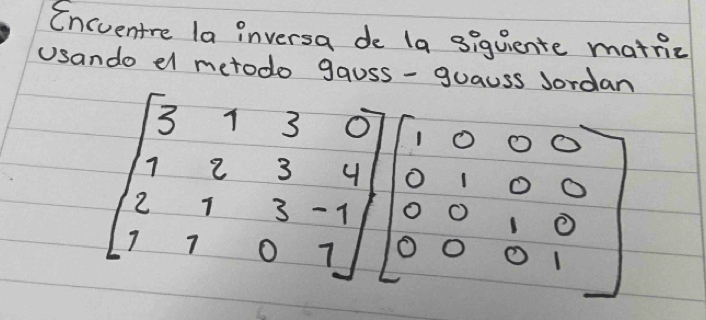 Encuentre la inversa de la siguiente matriz
usando el metodo gauss - guauss Jordan
3 1 3 0 1 0 0 0
1 2 3 4 0 1 0 0
2 1 3 -1 0 0 1 0
1 1 0 1 0 0 0 1